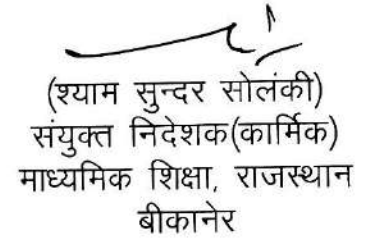 (श्याम सुन्दर सोलंकी)
संयुक्त निदेशक(कार्मिक)
माध्यमिक शिक्षा, राजस्थान
बीकानेर